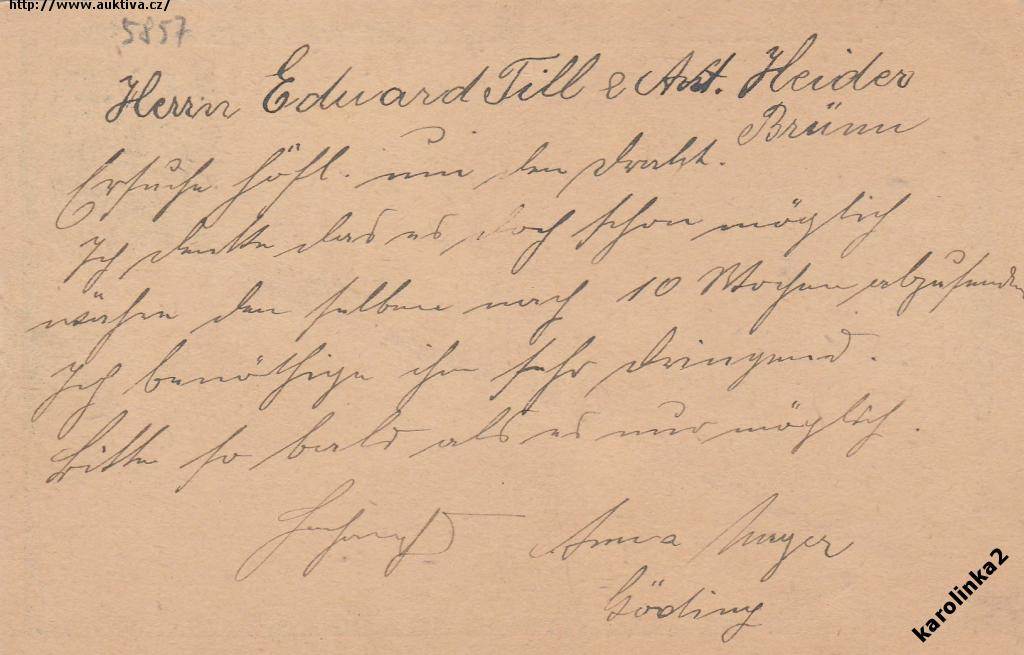 http://www.auktiva.cz/
5857
Herrn Eduard Till & Ant. Heider
Brünn
Ersuche höfl. um den Draht.
Ich denke das es doch schon möglich
währe den selben nach 10 Wochen abzusenden
Ich benöthige ihn sehr dringend.
Bitte so bald als es nur möglich.
Anna Mayer
Göding
karolinka2